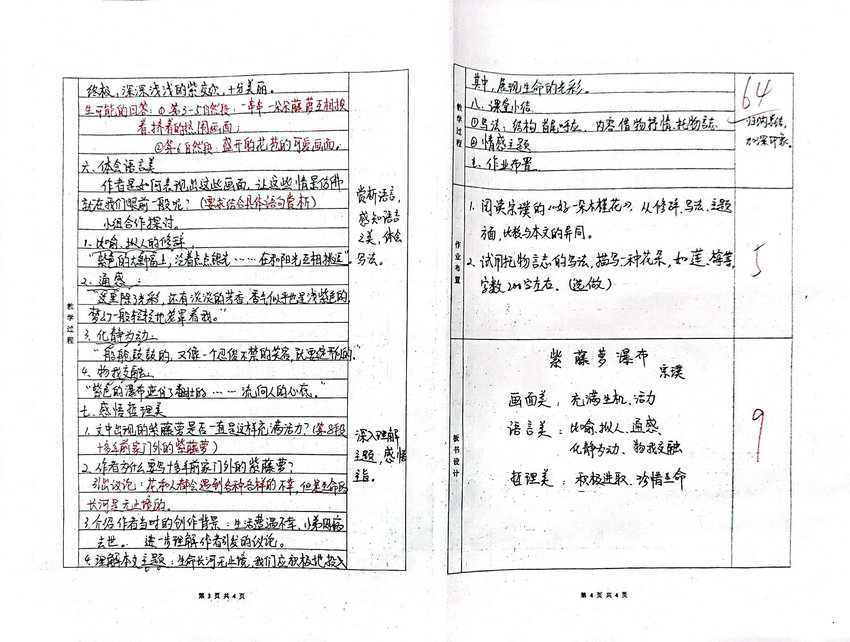 终极，深深浅浅的紫交欢，十分美丽。
生可能的回答：①第3-5自然段：一串串、一朵朵藤萝互相挨
着、挤着的热闹画面；
②第6自然段：盛开的花苞的可爱画面。
六、体会语言美
作者是如何表现出这些画面，让这些情景仿佛
就在我们眼前一般呢？(要求结合具体语句赏析)
小组合作探讨。
1. 比喻、拟人的修辞。
"紫色的大条幅上，泛着点点银光……在和阳光互相挑逗"。
2. 通感：
"这里除了光彩，还有淡淡的芳香，香气似乎也是浅紫色的，
梦幻一般轻轻地笼罩着我。"
3. 化静为动：
"船舱鼓鼓的，又像一个忍俊不禁的笑容，就要绽开似的"
4. 物我交融：
"紫色的瀑布遮住了粗壮的……流向人的心底。"
七、感悟哲理美
1. 文中出现的紫藤萝是否一直是这样充满活力？(第8段
十多年前家门外的紫藤萝)
2. 作者为什么要写十多年前家门外的紫藤萝？
引出议论：花和人都会遇到各种各样的不幸，但是生命的
长河是无止境的。
3. 介绍作者当时的创作背景：生活遭遇不幸、小弟因病
去世。 进一步理解作者引发的议论。
4. 理解本文主题：生命长河无止境，我们应积极地投入
教学过程
赏析语言，
感知语言
之美，体会
写法。
深入理解
主题，感悟
主旨。
第 3 页 共 4 页
其中，展现生命的光彩。
八、课堂小结
①写法：结构 首尾呼应，内容 借物抒情、托物言志
②情感主题
九、作业布置
教学过程
64
归纳总结，
加深印象。
1. 阅读宗璞的《好一朵木槿花》，从修辞、写法、主题
方面，比较与本文的异同。
2. 试用托物言志的写法，描写一种花朵，如莲、梅等，
字数200字左右。(选做)
作业布置
5
紫藤萝瀑布
宗璞
画面美：充满生机、活力
语言美：比喻、拟人、通感、
化静为动、物我交融
哲理美：积极进取、珍惜生命
板书设计
9
第 4 页 共 4 页